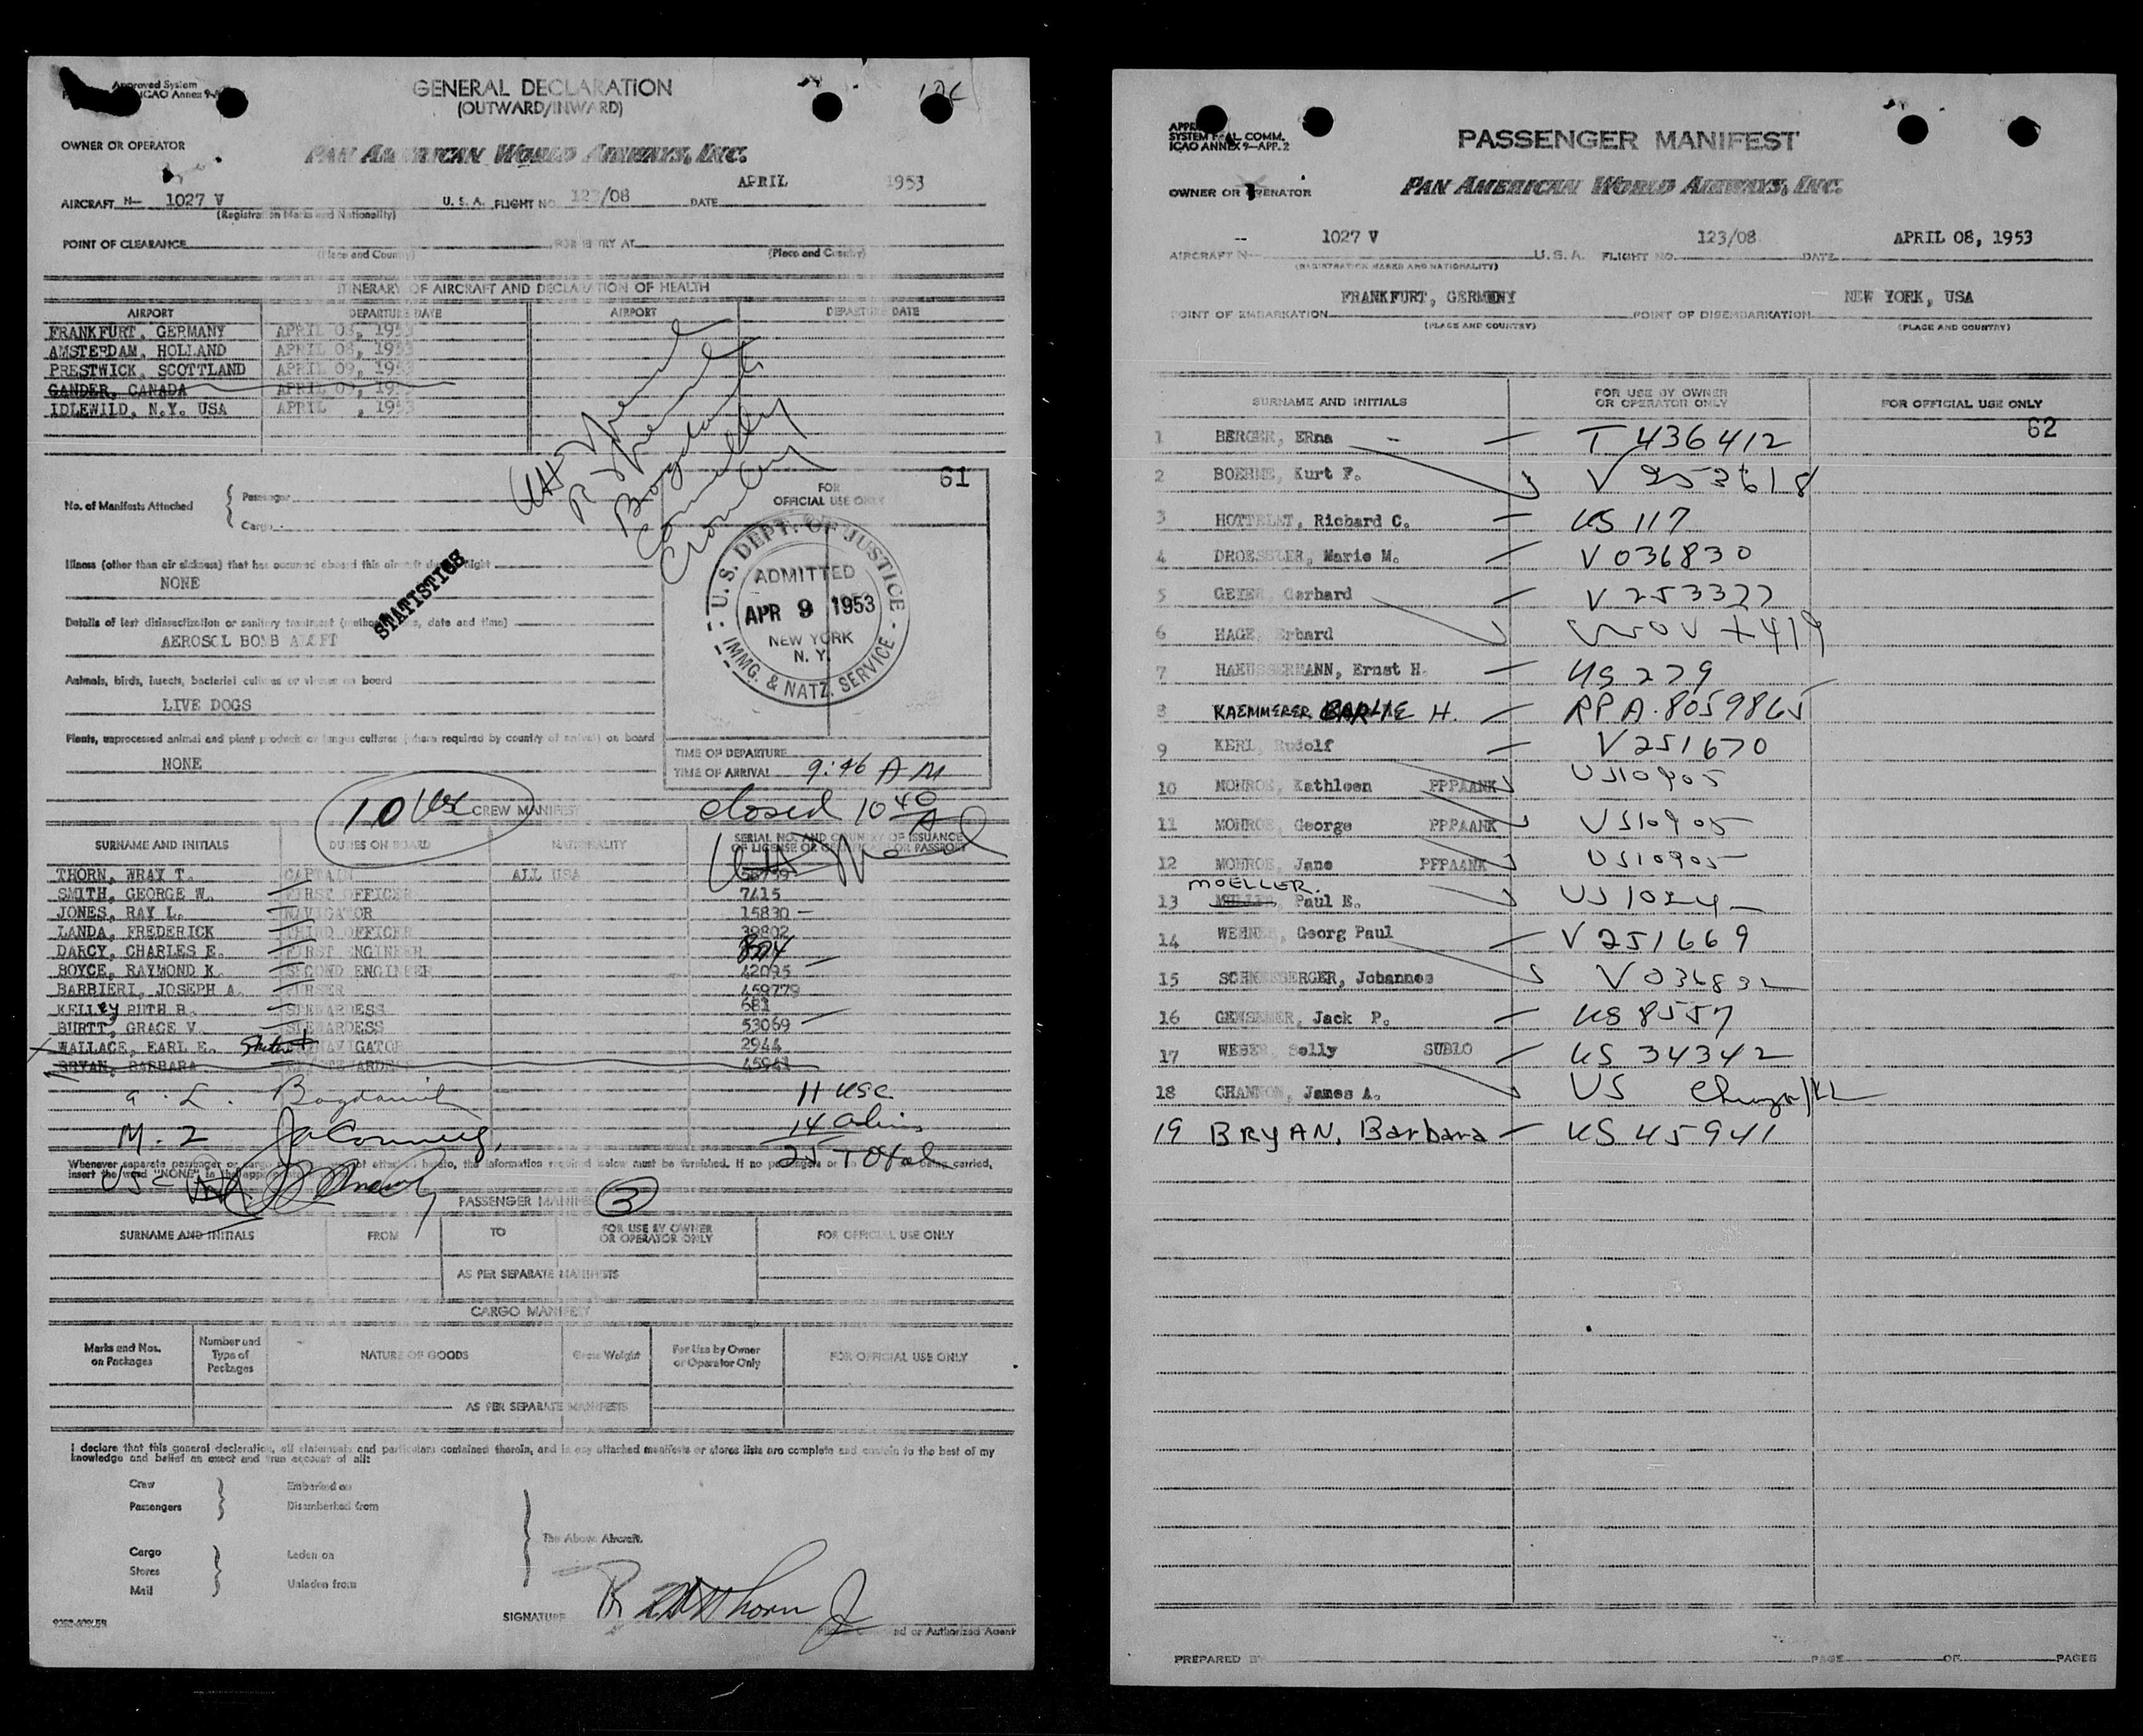 Approved System
ICAO Annex 9-
GENERAL DECLARATION
(OUTWARD/INWARD)
OWNER OR OPERATOR
PAN AMERICAN WORLD AIRWAYS, INC.
APRIL 1953
AIRCRAFT N- 1027 V U. S. A. FLIGHT NO. 123/08 DATE
(Registration Marks and Nationality)
POINT OF CLEARANCE FOR ENTRY AT
(Place and Country) (Place and Country)
ITINERARY OF AIRCRAFT AND DECLARATION OF HEALTH
AIRPORT DEPARTURE DATE AIRPORT DEPARTURE DATE
FRANKFURT, GERMANY APRIL 08, 1953
AMSTERDAM, HOLLAND APRIL 08, 1953
PRESTWICK, SCOTTLAND APRIL 09, 1953
GANDER, CANADA APRIL 09, 1953
IDLEWILD, N.Y. USA APRIL , 1953
61
No. of Manifests Attached { Passenger
Cargo
FOR
OFFICIAL USE ONLY
Illness (other than air sickness) that has occurred aboard this aircraft during flight
NONE
STATISTICS
Details of last disinsectization or sanitary treatment (method, place, date and time)
AEROSOL BOMB ALOFT
Animals, birds, insects, bacterial cultures or viruses on board
LIVE DOGS
Plants, unprocessed animal and plant products or fungus cultures (where required by country of arrival) on board
NONE
U. S. DEPT. OF JUSTICE
ADMITTED
APR 9 1953
NEW YORK
N. Y.
IMMG. & NATZ. SERVICE
TIME OF DEPARTURE
TIME OF ARRIVAL 9:46 AM
10 usc CREW MANIFEST closed 10 40 A
SURNAME AND INITIALS DUTIES ON BOARD NATIONALITY SERIAL NO. AND COUNTRY OF ISSUANCE
OF LICENSE OR CERTIFICATE OR PASSPORT
THORN, WRAY T. CAPTAIN ALL USA
SMITH, GEORGE W. FIRST OFFICER 7415
JONES, RAY L. NAVIGATOR 15830
LANDA, FREDERICK THIRD OFFICER 39802
DARCY, CHARLES E. FIRST ENGINEER
BOYCE, RAYMOND K. SECOND ENGINEER 42095
BARBIERI, JOSEPH A. PURSER 459779
KELLEY RUTH B. STEWARDESS 681
BURTT, GRACE V. STEWARDESS 53069
WALLACE, EARL E. NAVIGATOR 2944
BRYAN, BARBARA STEWARDESS 45941
11 USC
14 aliens
25 Total
Whenever separate passenger or cargo manifests are not attached hereto, the information required below must be furnished. If no passengers or cargo are being carried,
insert the word "NONE" in the appropriate
PASSENGER MANIFEST 3
SURNAME AND INITIALS FROM TO FOR USE BY OWNER
OR OPERATOR ONLY FOR OFFICIAL USE ONLY
AS PER SEPARATE MANIFESTS
CARGO MANIFEST
Marks and Nos.
on Packages Number and
Type of
Packages NATURE OF GOODS Gross Weight For Use by Owner
or Operator Only FOR OFFICIAL USE ONLY
AS PER SEPARATE MANIFESTS
I declare that this general declaration, all statements and particulars contained therein, and in any attached manifests or stores lists are complete and contain to the best of my
knowledge and belief an exact and true account of all:
Crew Embarked on
Passengers Disembarked from
The Above Aircraft.
Cargo Laden on
Stores
Mail Unladen from
SIGNATURE
or Authorized Agent
SYSTEM COMM.
ICAO ANNEX 9—APP. 2
PASSENGER MANIFEST
OWNER OR OPERATOR PAN AMERICAN WORLD AIRWAYS, INC.
1027 V 123/08 APRIL 08, 1953
AIRCRAFT N- U. S. A. FLIGHT NO. DATE
(REGISTRATION MARKS AND NATIONALITY)
FRANKFURT, GERMANY NEW YORK, USA
POINT OF EMBARKATION POINT OF DISEMBARKATION
(PLACE AND COUNTRY) (PLACE AND COUNTRY)
SURNAME AND INITIALS FOR USE BY OWNER
OR OPERATOR ONLY FOR OFFICIAL USE ONLY
62
1 BERGER, ERna T 436412
2 BOEHME, Kurt F. V 253618
3 HOTTELET, Richard C. US 117
4 DROESSLER, Marie M. V 036830
5 GEIER, Gerhard V 253327
6 HAGE, Erhard
7 HAEUSSERMANN, Ernst H. US 279
8 KAEMMERER H. RPA. 8059865
9 KERL, Rudolf V 251670
10 MONROE, Kathleen PPPAANK US10905
11 MONROE, George PPPAANK US10905
12 MONROE, Jane PPPAANK US10905
MOELLER.
13 Paul E. US 1024
14 WEHNER, Georg Paul V 251669
15 SCHNEEBERGER, Johannes V 036832
16 GENSEMER, Jack P. US 8557
17 WEBER, Selly SUBLO US 34342
18 James A. US
19 BRYAN, Barbara US 45941
PREPARED BY PAGE OF PAGES